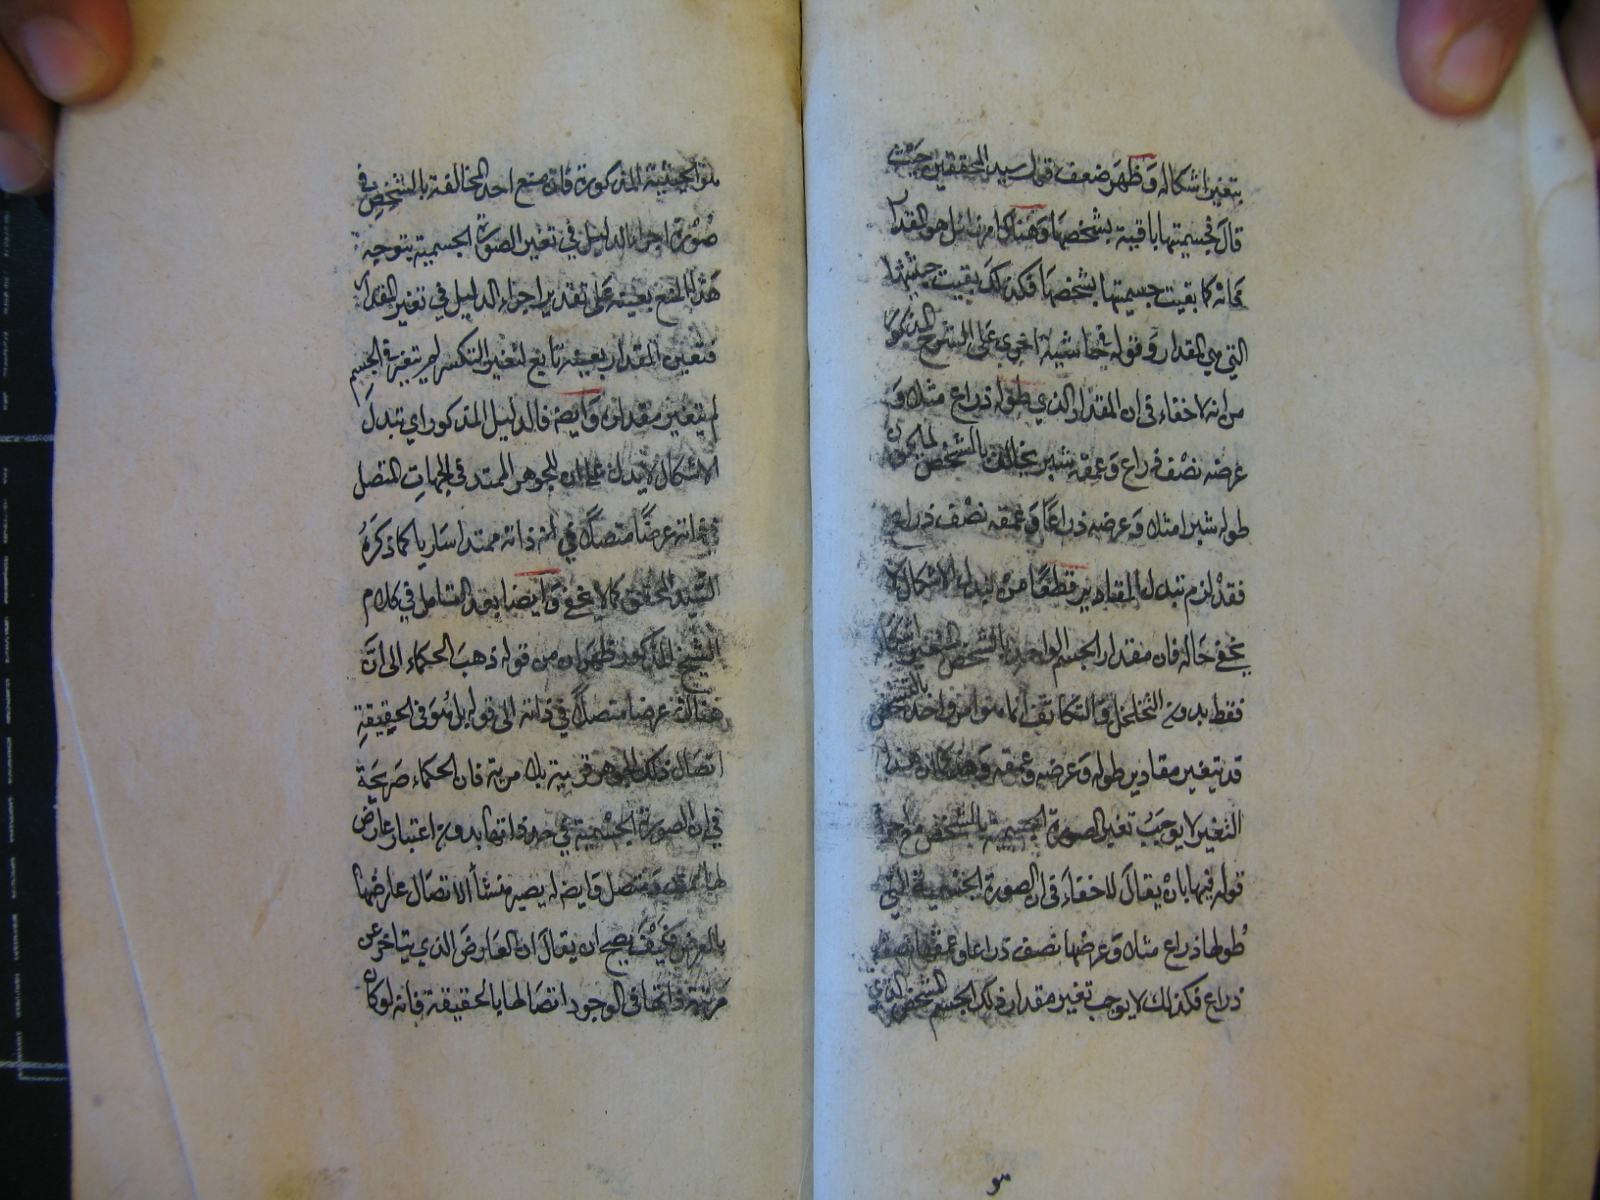 بتغير اشكاله وَظهَر ضعف قول سيد المحققين حيث
قالَ فجسميتها باقية بشخصهَا وَهناك امر زائل هو المقدار
فانه كما بقيت جسميتها بشخصهَا فكذلكَ بقيت
التي هي المقدار وَقوله في حاشية اخرى عَلى الشرح المذكور
من انه لا خفاء في ان المقدار الذي طوله ذراع مثلا وَ
عرضه نصْف ذراع وَعمقه شبر يخالف بالشخص لما يكون
طوله شبرا مثلا وَعرضه ذراعًا وَعمقه نصْف ذراع
فقدْ لزم تبدل المقادير قطعًا من تبدل الاشكال لا
يخفى حَاله فان مقدار الجسم الواحد بالشخص المتغير اشكاله
فقط بدون التخلخل وَالتكاثف انما هو امر واحد بالشخص
قد يتغير مقادير طوله وَعرضه وَعمقه وَهذا
التغير لا يوجبُ تغير الصورة الجسمية بالشخص مع
قوله فيها بانْ يقالَ لا خفاءَ في ان الصورة الجسْمية التي
طولها ذراع مثلا وَعرضها نصف ذراع وعمقها نصف
ذراع فكذلك لا يوجب تغير مقدار ذلك الجسم الشخص الذي
هو
المذكورة فان منع احد المخالفة بالشخص في
صُوْرة اجراء الدليل في تغير الصورة الجسمية يتوجه
هَذا المنع بعينه عَلى تقدير اجراء الدليل في تغير المقدار
فتغير المقدار بعينه تابع لتغير التكسر لم يتغير في الجسم
لم يتغير مقداره وَايضا فالدليل المذكور اي تبدل
الاشكال لا يدل على ان للجوهر الممتد في الجهات المتصل
في ذاته عرضًا متصلاً في انه ذاته ممتدا ساريا كما ذكرَهُ
السّيد المحقق كما لا يخفى وَايضا بعد التامل في كلام
الشيخ المذكور ظهر ان من قوله ذهبَ الحكماء الى انَّ
هناك عرضا متصلاً في ذاته الى قوله بل هُوَ في الحقيقةِ
اتصَال ذلك الجوهر فرية بلا مرية فان الحكماء صَرحة
في ان الصورة الجسْمية في حد ذاتها بدون اعتبار عارض
لها ممتد وَمتصل وَايضا له يصير منشأ الاتصَال عارضها
بالعرض فكيْفَ يصح ان يقالَ ان العَارضَ الذي يتاخر عن
مرتبة ذاتها في الوجود اتصَالها بالحقيقة فانه لو كان